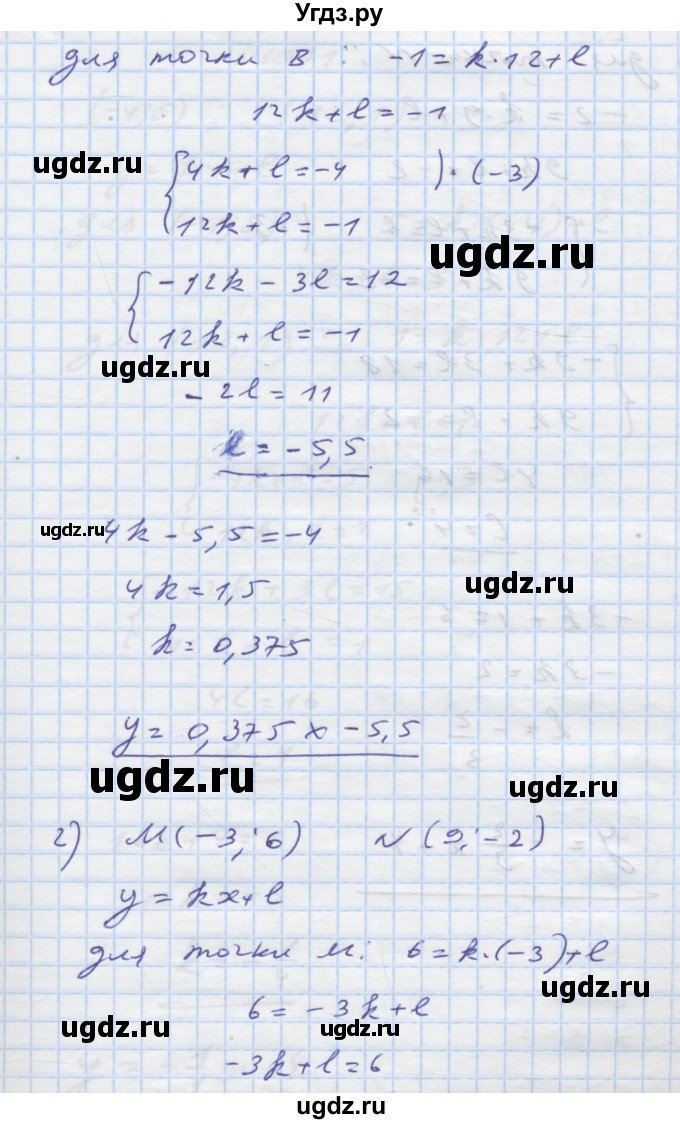 Угдз.ру
для точки В : -1 = k·12+l
12k+l=-1
ugdz.ru
{4k+l=-4 )·(-3)
12k+l=-1
ugdz.ru
{-12k-3l=12
12k+l=-1
ugdz.ru
-2l=11
l=-5,5
ugdz.ru
4k-5,5=-4
4k=1,5
ugdz.ru
k=0,375
y=0,375x-5,5
ugdz.ru
ugdz.ru
г) M(-3; 6) N(9; -2)
y=kx+l
для точки М: 6=k·(-3)+l
ugdz.ru
6=-3k+l
ugdz.ru
ugdz.ru
-3k+l=6
ugdz.ru